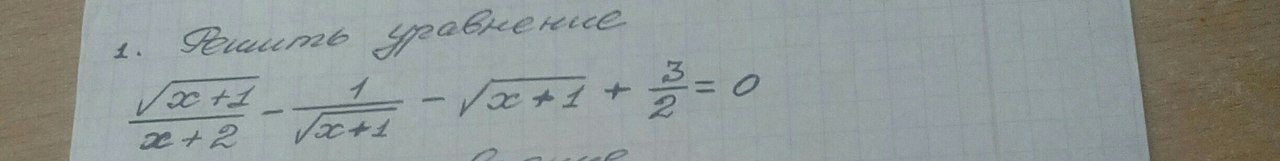 1. Решить уравнение
√(x+1)/(x+2) - 1/√(x+1) - √(x+1) + 3/2 = 0